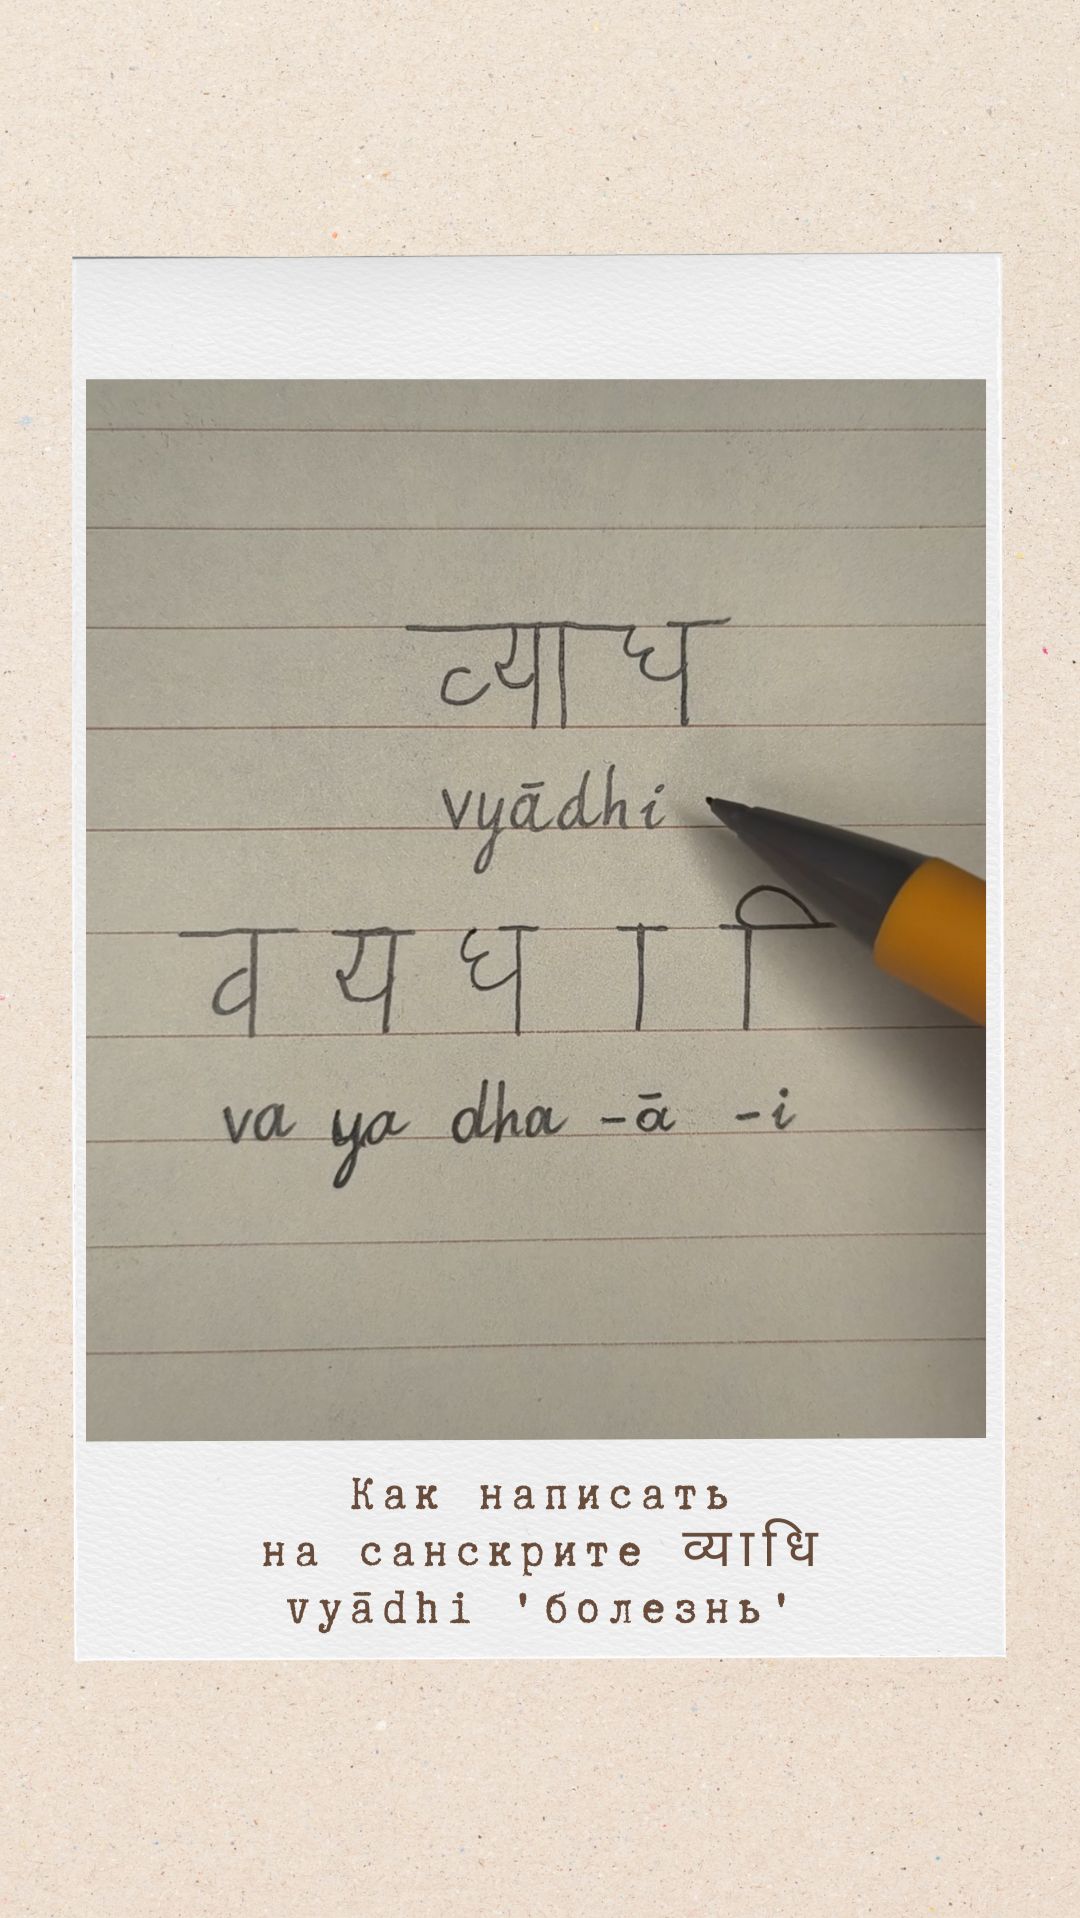 व्याध
vyādhi
व य ध ा ि
va ya dha -ā -i
Как написать
на санскрите व्याधि
vyādhi 'болезнь'